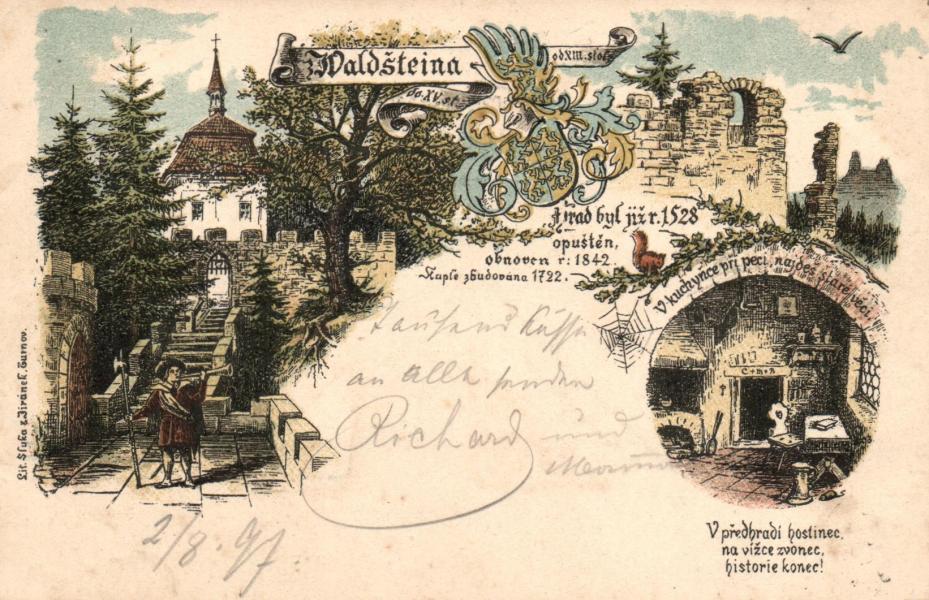 z Waldšteina
od XIII. stol.
do XV. st.
Hrad byl již r. 1528
opuštěn,
obnoven r: 1842.
Kaple zbudována 1722.
V kuchyňce při peci, najdeš staré věci
C+M+B
Tausend Küsse
an alle senden
Richard und
2/8. 97.
V předhradí hostinec,
na vížce zvonec,
historie konec!
Lit. Sluka & Jiránek, Turnov.